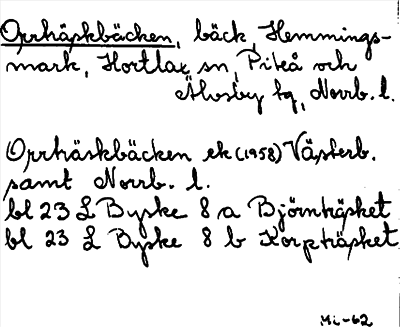 Orrträskbäcken, bäck, Hemmings-
mark, Hortlax sn, Piteå och
Älvsby tg, Norrb. l.
Orrträskbäcken ek (1958) Västerb.
samt Norrb. l.
bl 23 L Byske 8 a Björnträsket
bl 23 L Byske 8 b Korpträsket
Mi-62